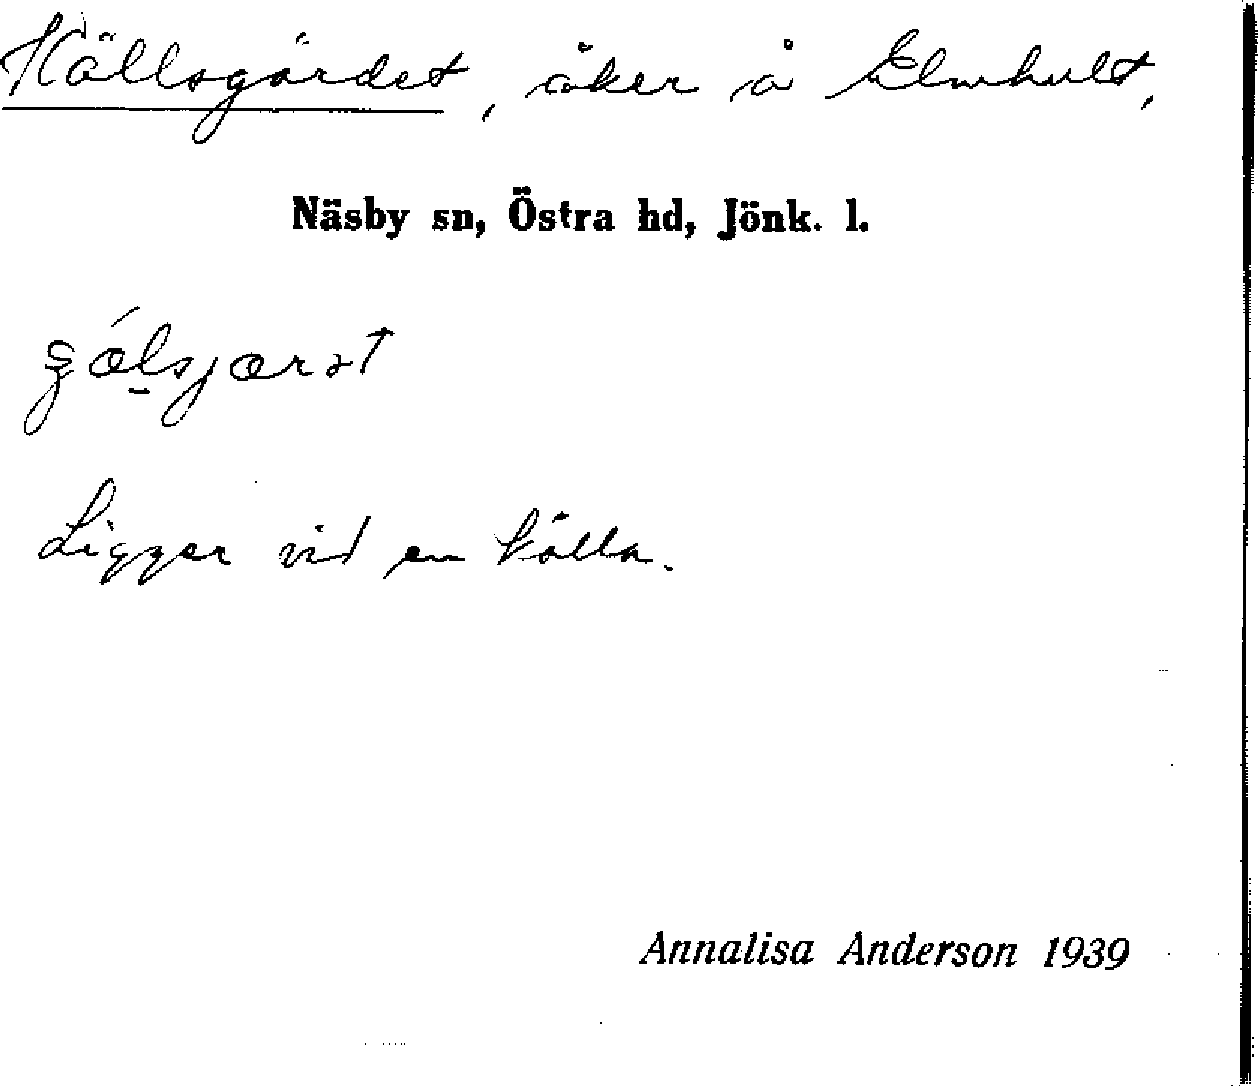 Källsgärdet, åker å Elmhult,
Näsby sn, Östra hd, Jönk. l.
Ligger vid en källa.
Annalisa Anderson 1939